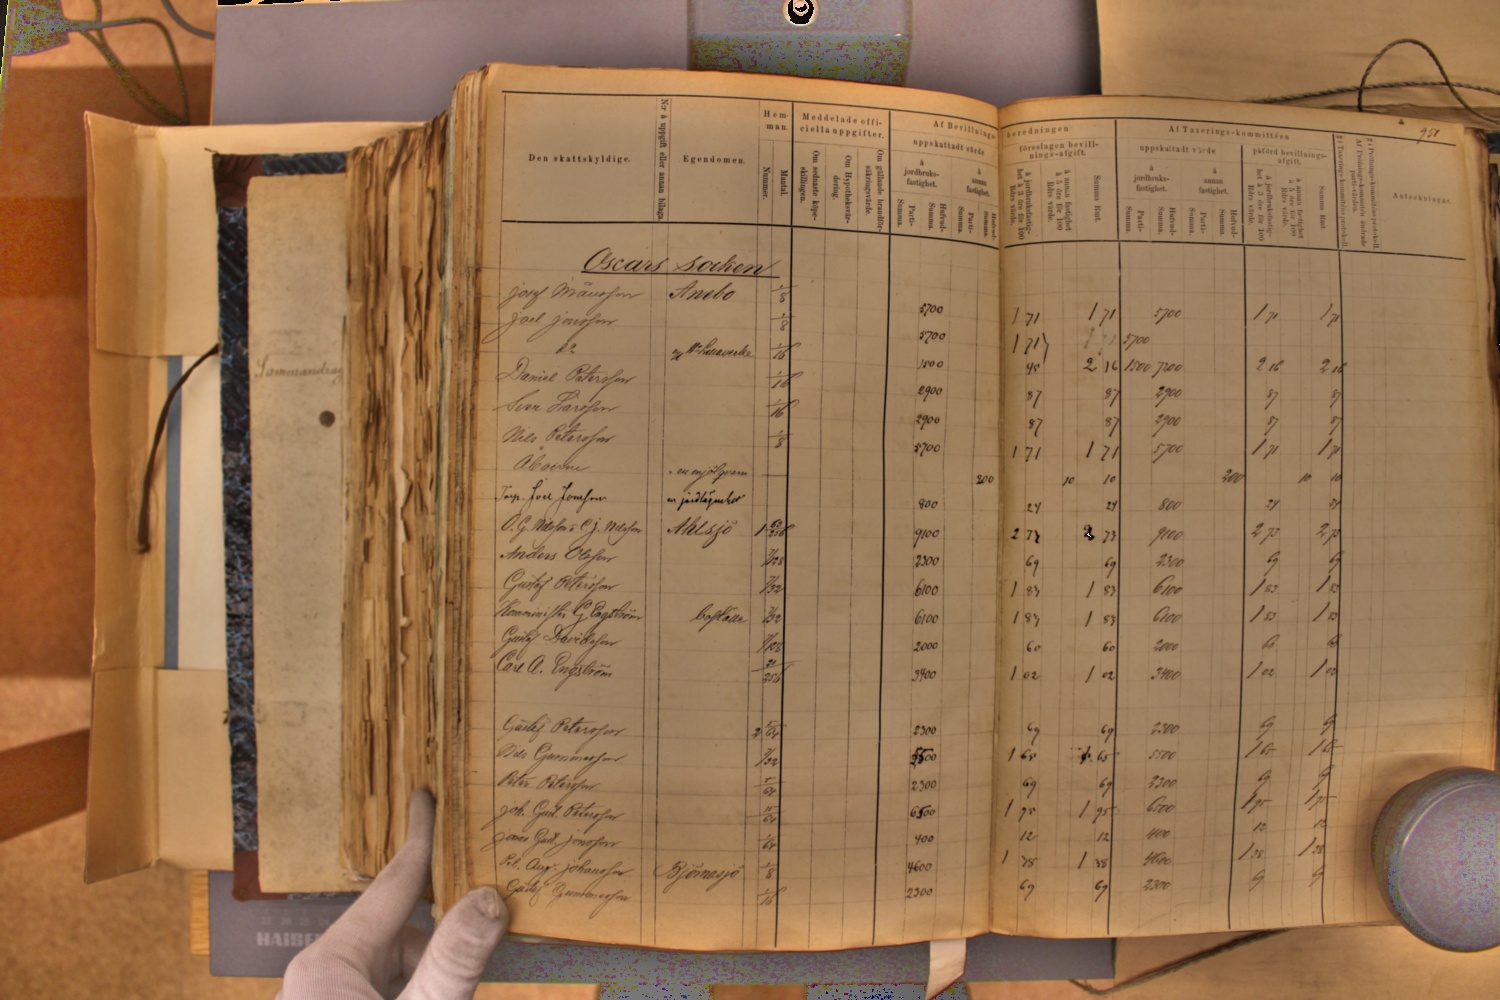 951
Den skattskyldige.
Nr å uppgift eller annan bilaga.
Egendomen.
Hemman.
Nummer.
Mantal.
Meddelade officiella uppgifter.
Om sednaste köpeskillingen.
Om Hypotheksvärdering.
Om gällande brandförsäkringsvärde.
Af Bevillnings-
uppskattadt värde
å jordbruksfastighet.
å annan fastighet.
Parti-Summa.
Hufvud-Summa.
Parti-Summa.
Hufvud-Summa.
beredningen
föreslagen bevillningsafgift.
å jordbruksfastighet à 3 öre för 100 Rdrs värde.
å annan fastighet à 5 öre för 100 Rdrs värde.
Summa Rmt.
Af Taxerings-kommittéen
uppskattadt värde
å jordbruksfastighet.
å annan fastighet.
Parti-Summa.
Hufvud-Summa.
Parti-Summa.
Hufvud-Summa.
påförd bevillningsafgift.
å jordbruksfastighet à 3 öre för 100 Rdrs värde.
å annan fastighet à 5 öre för 100 Rdrs värde.
Summa Rmt.
Anteckningar.
Oscars socken
Anebo 1/8 5700 1 71 1 71 5700 1 71 1 71
Joel Jonsson 5700 1 71 5700
do 1/16 1500 45 2 16 1500 7200 2 16 2 16
Daniel Petersson 1/16 2900 87 87 2900 87 87
Sven Larsson 1/16 2900 87 87 2900 87 87
Nils Petersson 1/8 5700 1 71 1 71 5700 1 71 1 71
Åboerne 200 10 10 200 10 10
800 24 24 800 24 24
O. G. Nilsson & C. J. Nilsson Ahlsjö 9100 2 73 2 73 9100 2 73 2 73
Anders Olsson 7/128 2300 69 69 2300 69 69
Gustaf Petersson 7/32 6100 1 83 1 83 6100 1 83 1 83
Komminister G Engström boställe 7/32 6100 1 83 1 83 6100 1 83 1 83
Gustaf Davidsson 7/128 2000 60 60 2000 60 60
Carl A. Engström 21/256 3400 1 02 1 02 3400 1 02 1 02
Gustaf Petersson 2 5/64 2300 69 69 2300 69 69
Nils Gummesson 7/32 5500 1 65 1 65 5500 1 65 1 65
Peter Petersson 2300 69 69 2300 69 69
Joh. Gust. Petersson 6500 1 95 1 95 6500 1 95 1 95
Jonas Gust. Jonsson 1/64 400 12 12 400 12 12
Pet. Aug. Johansson Björnesjö 1/8 4600 1 38 1 38 4600 1 38 1 38
Gustaf Gummesson 1/16 2300 69 69 2300 69 69
Sammandrag